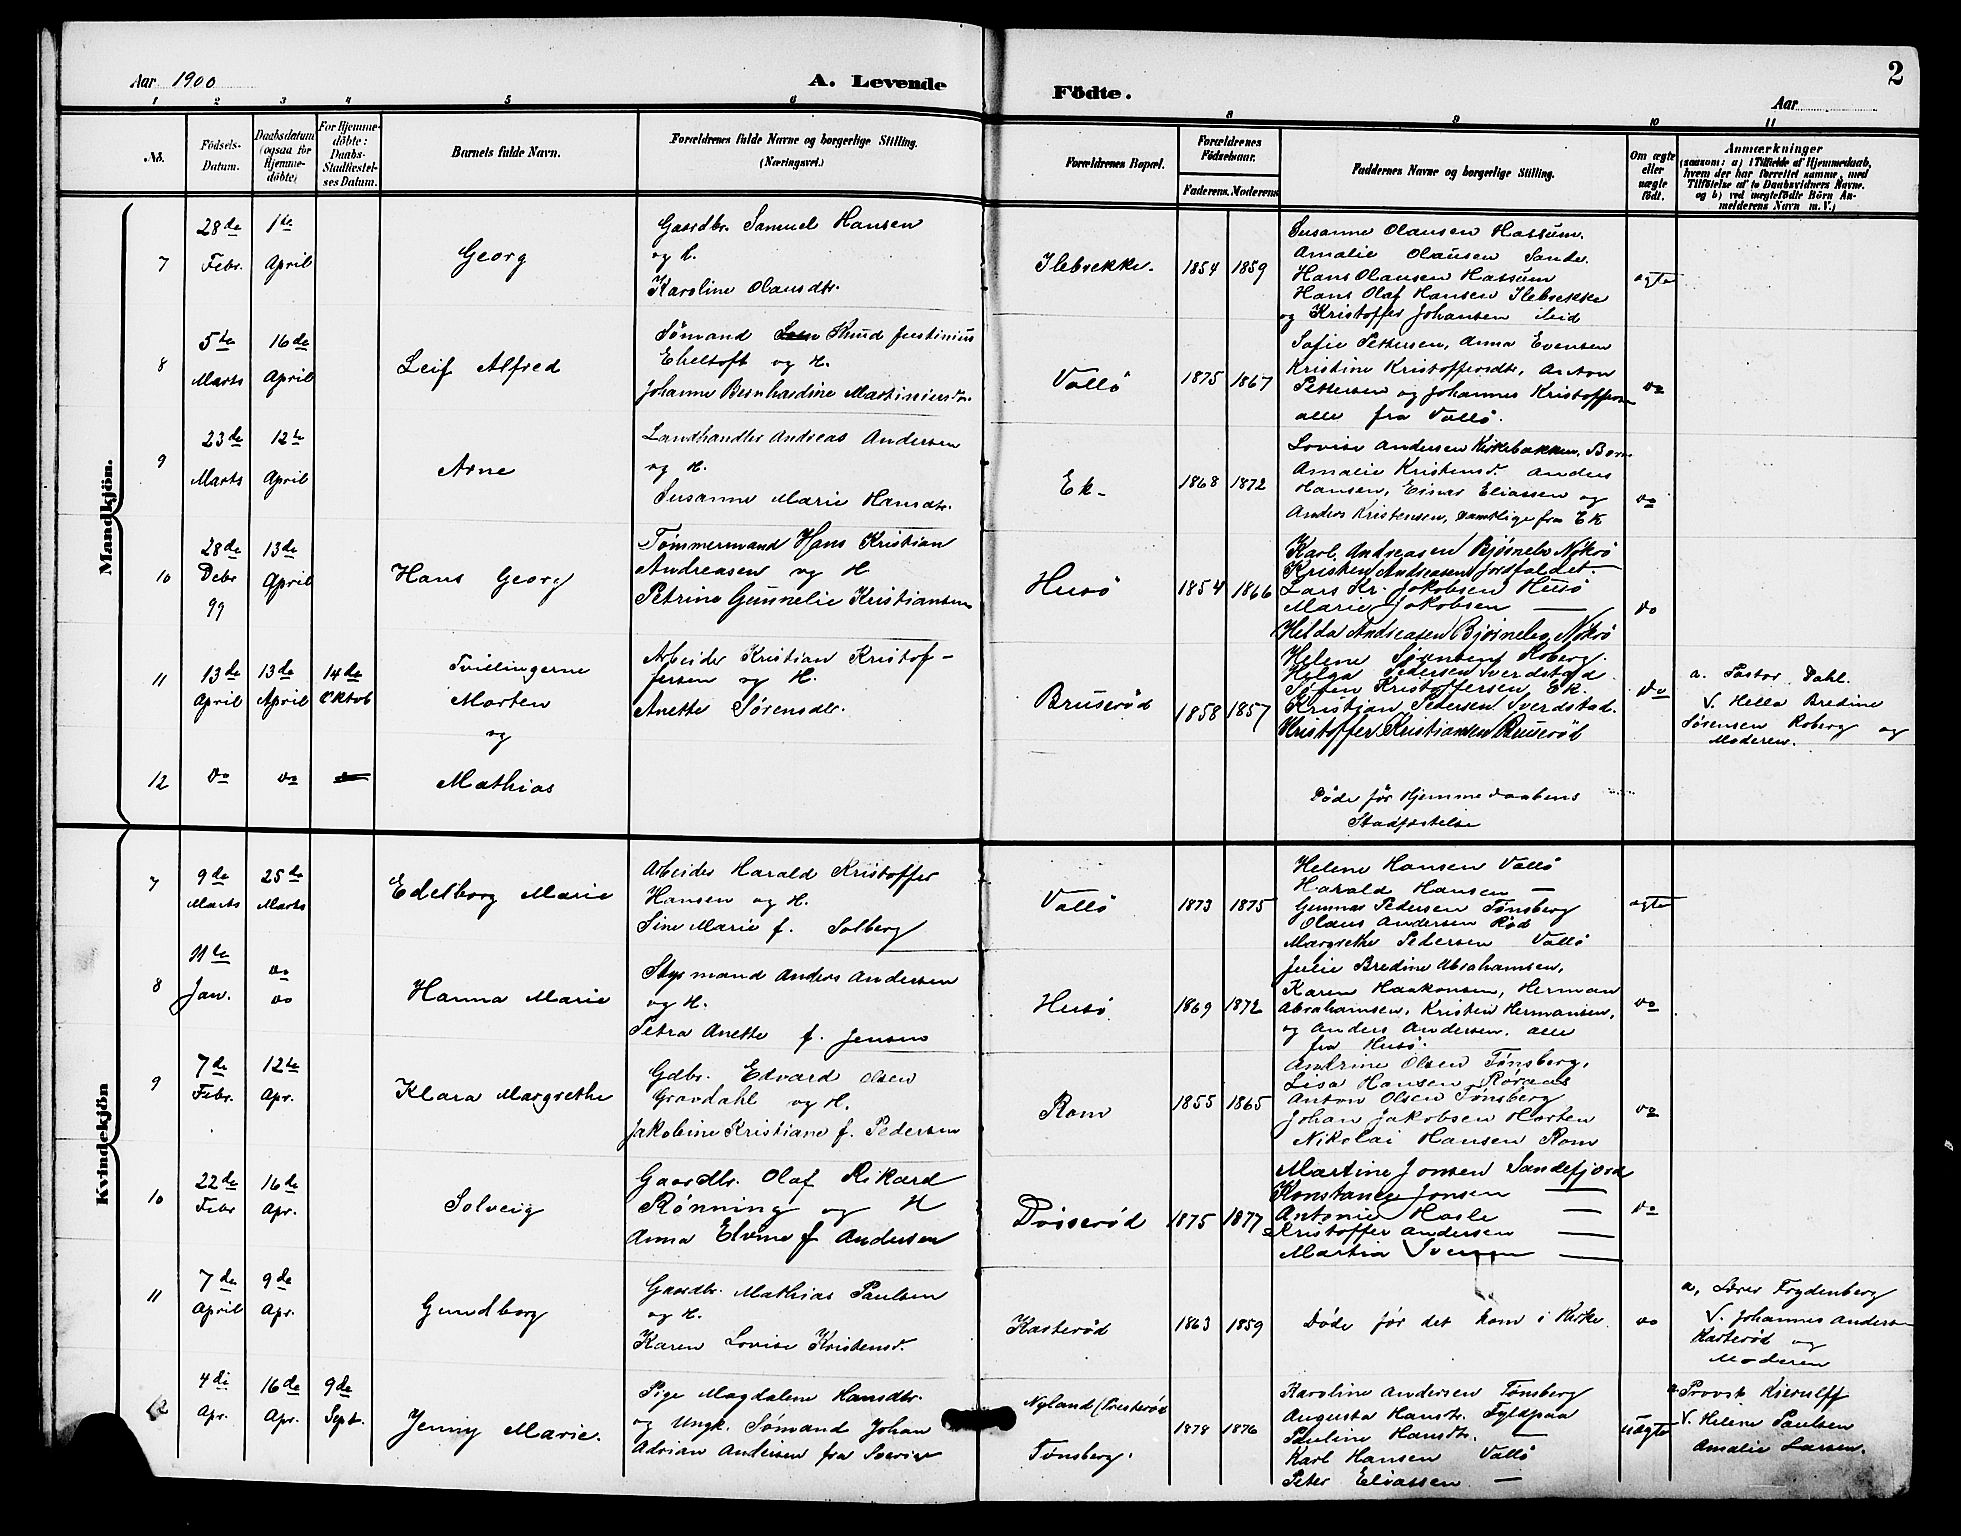 Aar 1900
A. Levende
Födte.
Aar
2
1 2 3 4 5 6 8 9 10 11
No.
Födsels-Datum.
Daabsdatum (ogsaa for Hjemme-döbte)
For Hjemme-döbte: Daabs-Stadfæstel-ses Datum.
Barnets fulde Navn.
Forældrenes fulde Navne og borgerlige Stilling.
(Næringsvei.)
Forældrenes Bopæl.
Forældrenes Födselsaar.
Faderens. Moderens.
Faddernes Navne og borgerlige Stilling.
Om ægte eller uægte födt.
Anmærkninger
(saasom: a) i Tilfælde af Hjemmedaab, hvem der har forrettet samme, med Tilföielse af to Daabsvidners Navne. og b) ved uægtefödte Börn An-melderens Navn m. V.)
Mandkjön.
7
28de Febr.
1te April
Georg
Gaardbr. Samuel Hansen
og h.
Karoline Olausdtr.
Ilebrekke.
1854 1859
Susanne Olausen Hassum.
Amalie Olausen Sande.
Hans Olausen Hassum
Hans Olaf Hansen Ilebrekke
og Kristoffer Johansen ibid
ægte
8
5te Marts
16de April
Leif Alfred
Sømand Knud Justinius
Eheltoft og H.
Johanne Bernhardine Martiniusdr.
Vallö
1875 1867
Sofie Pettersen, Anna Evensen
Kristine Kristoffersdtr, Anton
Pettersen og Johannes Kristoffersen
alle fra Vallö.
do
9
23de Marts
12te April
Arne
Landhandler Andreas Andersen
og H.
Susanne Marie Hansdtr.
Ek-
1868 1872
Lovise Andersen Kirkebakken,
Amalie Kristensd. Anders
Hansen, Einar Eliassen og
Anders Kristensen, samtlige fra Ek
do
10
28de Debr 99
13de April
Hans Georg
Tömmermand Hans Kristian
Andreasen og H
Petrine Gunnelie Kristiansen
Husö
1854 1866
Karl Andreasen Bjørnebo Nøtrö
Kristen Andreasen Jordfaldet
Lars Kr. Jakobsen Husö
Marie Jakobsen —
Helda Andreasen Bjørnebo Nøtrö
do
11
13de April
13de April
14de Oktob
Tvillingerne
Morten
og
Arbeider Kristian Kristof-
fersen og H.
Anette Sørensdtr.
Bruserød
1858 1857
Helene Sørensen Roberg.
Helga Pedersen Sverdstad
Søren Kristoffersen, Ek.
Kristian Pedersen Sverdstad.
Kristoffer Kristiansen Bruserød
do
a. Pastor Dahl.
V. Hella Bredine
Sørensen Roberg og
Moderen.
12
do do
Mathias
Døde før Hjemmedaabens
Stadfæstelse
Kvindekjön
7
9de Marts
25de Marts
Edelborg Marie
Arbeider Harald Kristoffer
Hansen og H.
Sine Marie f. Solberg
Vallö
1873 1875
Helene Hansen Vallö
Harald Hansen —
Gunnar Pedersen Tønsberg
Olaus Andersen Rød
Margrethe Pedersen Vallö
ægte
8
11te Jan.
do do
Hanna Marie
Styrmand Anders Andersen
og H.
Petra Anette f. Jensen
Husö
1869 1872
Julie Bredine Abrahamsen,
Karen Haakonsen, Herman
Abrahamsen, Kristen Hermansen,
og Anders Andersen, alle
fra Husö.
do
9
7de Febr.
12te Apr.
Klara Margrethe
Gdbr. Edvard Olsen
Gravdahl og H.
Jakobine Kristiane f. Pedersen
Rom
1855 1865
Andrine Olsen Tønsberg,
Lisa Hansen Røraas
Anton Olsen Tønsberg
Johan Jakobsen Horten
Nikolai Hansen Rom
do
10
22de Febr
16de Apr.
Solveig
Gaardbr. Olaf Rikard
Rönning og H
Anna Elvine f Andersen
Døsserød
1875 1877
Martine Jonsen Sandefjord
Konstance Jonsen —
Antonie Hasle —
Kristoffer Andersen —
Martin Iversen —
do
11
7de April
9de Apr.
Gundborg
Gaardbr. Mathias Paulsen
og H.
Karen Lovise Kristensd.
Kasterød
1863 1859
Døde før det kom i Kirke
do
a, Lærer Frydenberg
V. Johannes Andersen
Kasterød og
Moderen
12
4de Apr.
16de Apr.
9de Sept.
Jenny Marie.
Pige Magdalene Hansdtr.
og Ungk. Sømand Johan
Adrian Andersen fra
Nyland (Presterød
Tønsberg.
1878 1876
Karoline Andersen Tønsberg
Augusta Hansdtr. Fyldpaa
Pauline Hansdtr. —
Karl Hansen Vallö
Peter Eliassen —
uægte
a. Provst Kierulff
V. Helene Paulsen
Amalie Larsen.